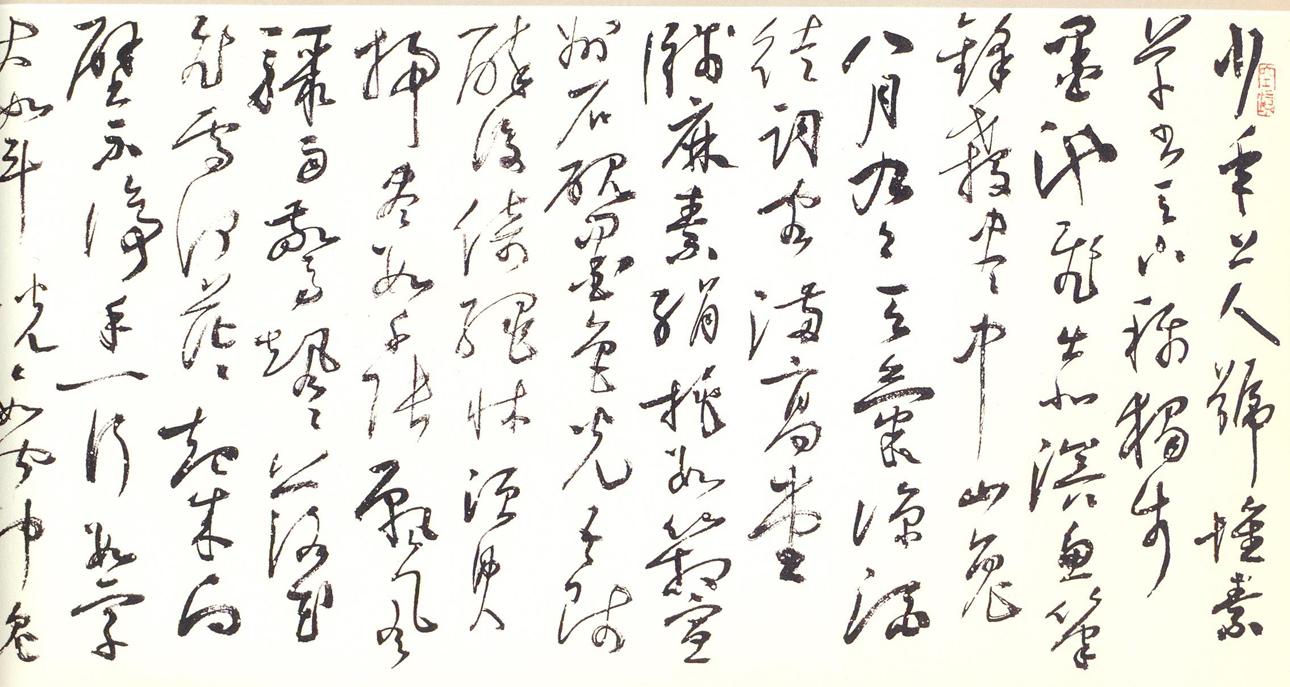 少年上人號懷素
草書天下稱獨步
墨池飛出北溟魚筆
鋒殺盡中山兔
八月九月天氣涼酒
徒詞客滿高堂
牋麻素絹排數箱宣
州石硯墨色光吾師
醉後倚繩床須臾
掃盡數千張飄風
驟雨驚颯々落花
飛雪何茫々起來向
壁不停手一行數字
大如斗怳々如聞神鬼